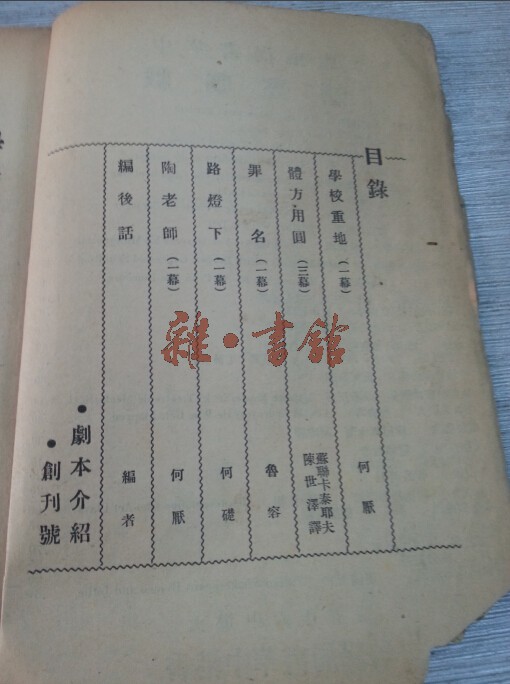 目錄
學校重地（一幕） 何厭
體方·用圓（三幕） 蘇聯卡泰耶夫 陳世澤譯
罪名（一幕） 魯容
路燈下（一幕） 何礎
陶老師（一幕） 何厭
編後話 編者
·劇本介紹
·創刊號
雜·書館